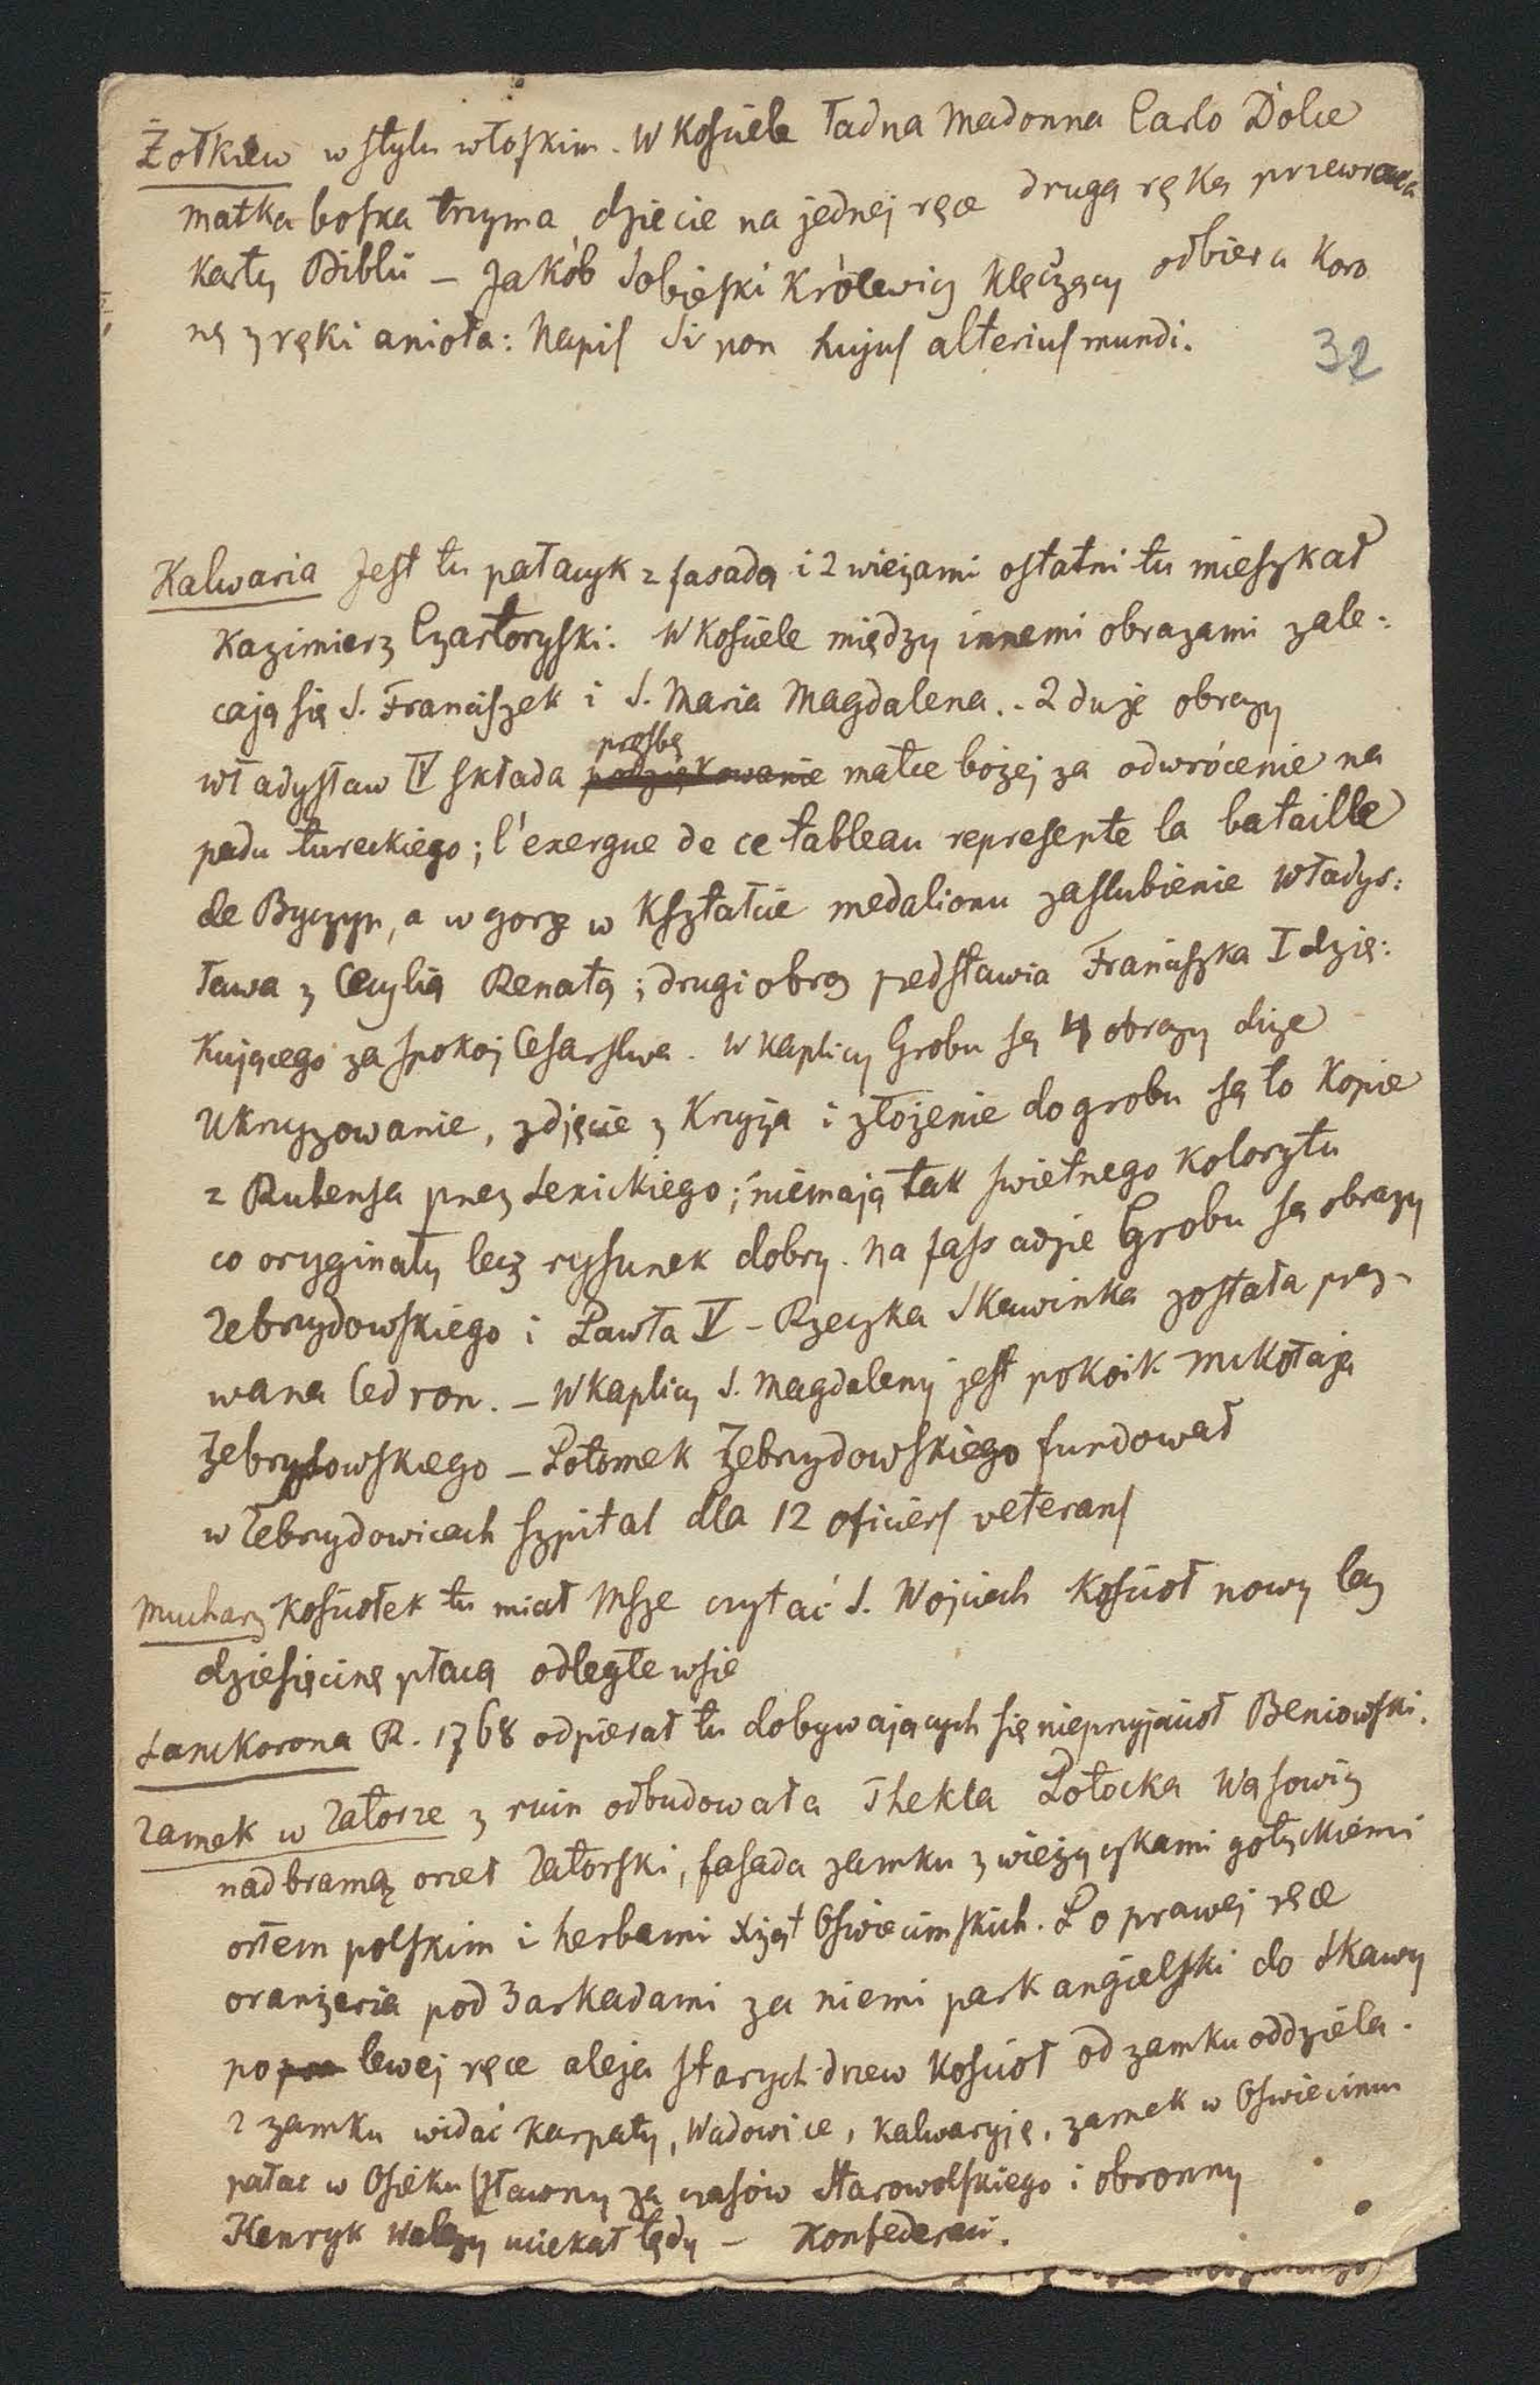 Żołkiew w stylu włoskim. W Kościele ładna Madonna Carlo Dolce
matka boska trzyma dziecie na jednej ręce drugą ręką przewraca
karty Biblii – Jakób Sobieski Królewicz klęczący odbiera koro
nę z ręki anioła: Napis Si non hujus alterius mundi.
32
Kalwaria Jest tu pałacyk z fasadą i 2 wieżami ostatni tu mieszkał
Kazimierz Czartoryski. W Kościele między innemi obrazami zale:
cają się S. Franciszek i S. Maria Magdalena. - 2 duże obrazy
prośbę
Władysław IV składa podziękowanie matce bożej za odwrócenie na
padu tureckiego; l'exergue de ce tableau represente la bataille
de Byczyn, a w gorze w kształcie medalionu zaslubienie Władys:
ława z Cecylią Renatą; drugi obraz pedstawia Franciszka I dzię:
kującego za spokoj Cesarstwa. W kaplicy Grobu są 4 obrazy duże
Ukrzyzowanie, zdjęcie z Krzyża i złożenie do grobu są to kopie
z Rubensa przez Lexickiego; niemają tak swietnego kolorytu
co oryginały lecz rysunek dobry. Na fassadzie Grobu są obrazy
Zebrzydowskiego i Pawła V – Rzeczka Skawinka została prez-
wana Cedron. – W kaplicy S. Magdaleny jest pokoik Mikołaja
Żebrzydowskiego – Potomek Żebrzydowskiego fundował
w Zebrzydowicach szpital dla 12 oficiers veterans
Mucharz Kościołek tu miał Msze czytać S. Wojciech Kościoł nowy lecz
dziesięcinę płacą odległe wsie
Lanckorona R. 1768 odpierał tu dobywających się nieprzyjacioł Beniowski.
Zamek w Zatorze z ruin odbudowała Thekla Potocka Wąsowicz
nad bramą orzeł Zatorski, fasada zamku z wieżyczkami gotyckiemi
orłem polskim i herbami Xiąt Oświecimskich. Po prawej ręce
oranżeria pod 3 arkadami za niemi park angielski do Skawy
po lewej ręce aleja starych drzew kościoł od zamku oddziela.
Z zamku widać Karpaty, Wadowice, Kalwaryję, zamek w Oświecimu
pałac w Osieku (Sławny za czasów Starowolskiego i obronny
Henryk Walezy uciekał tędy – Konfederaci.